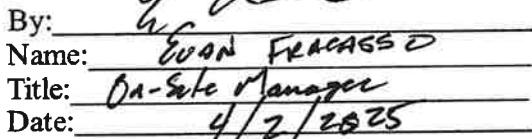 By:
Name: EVAN FRACASSO
Title: On-Site Manager
Date: 4/2/2025